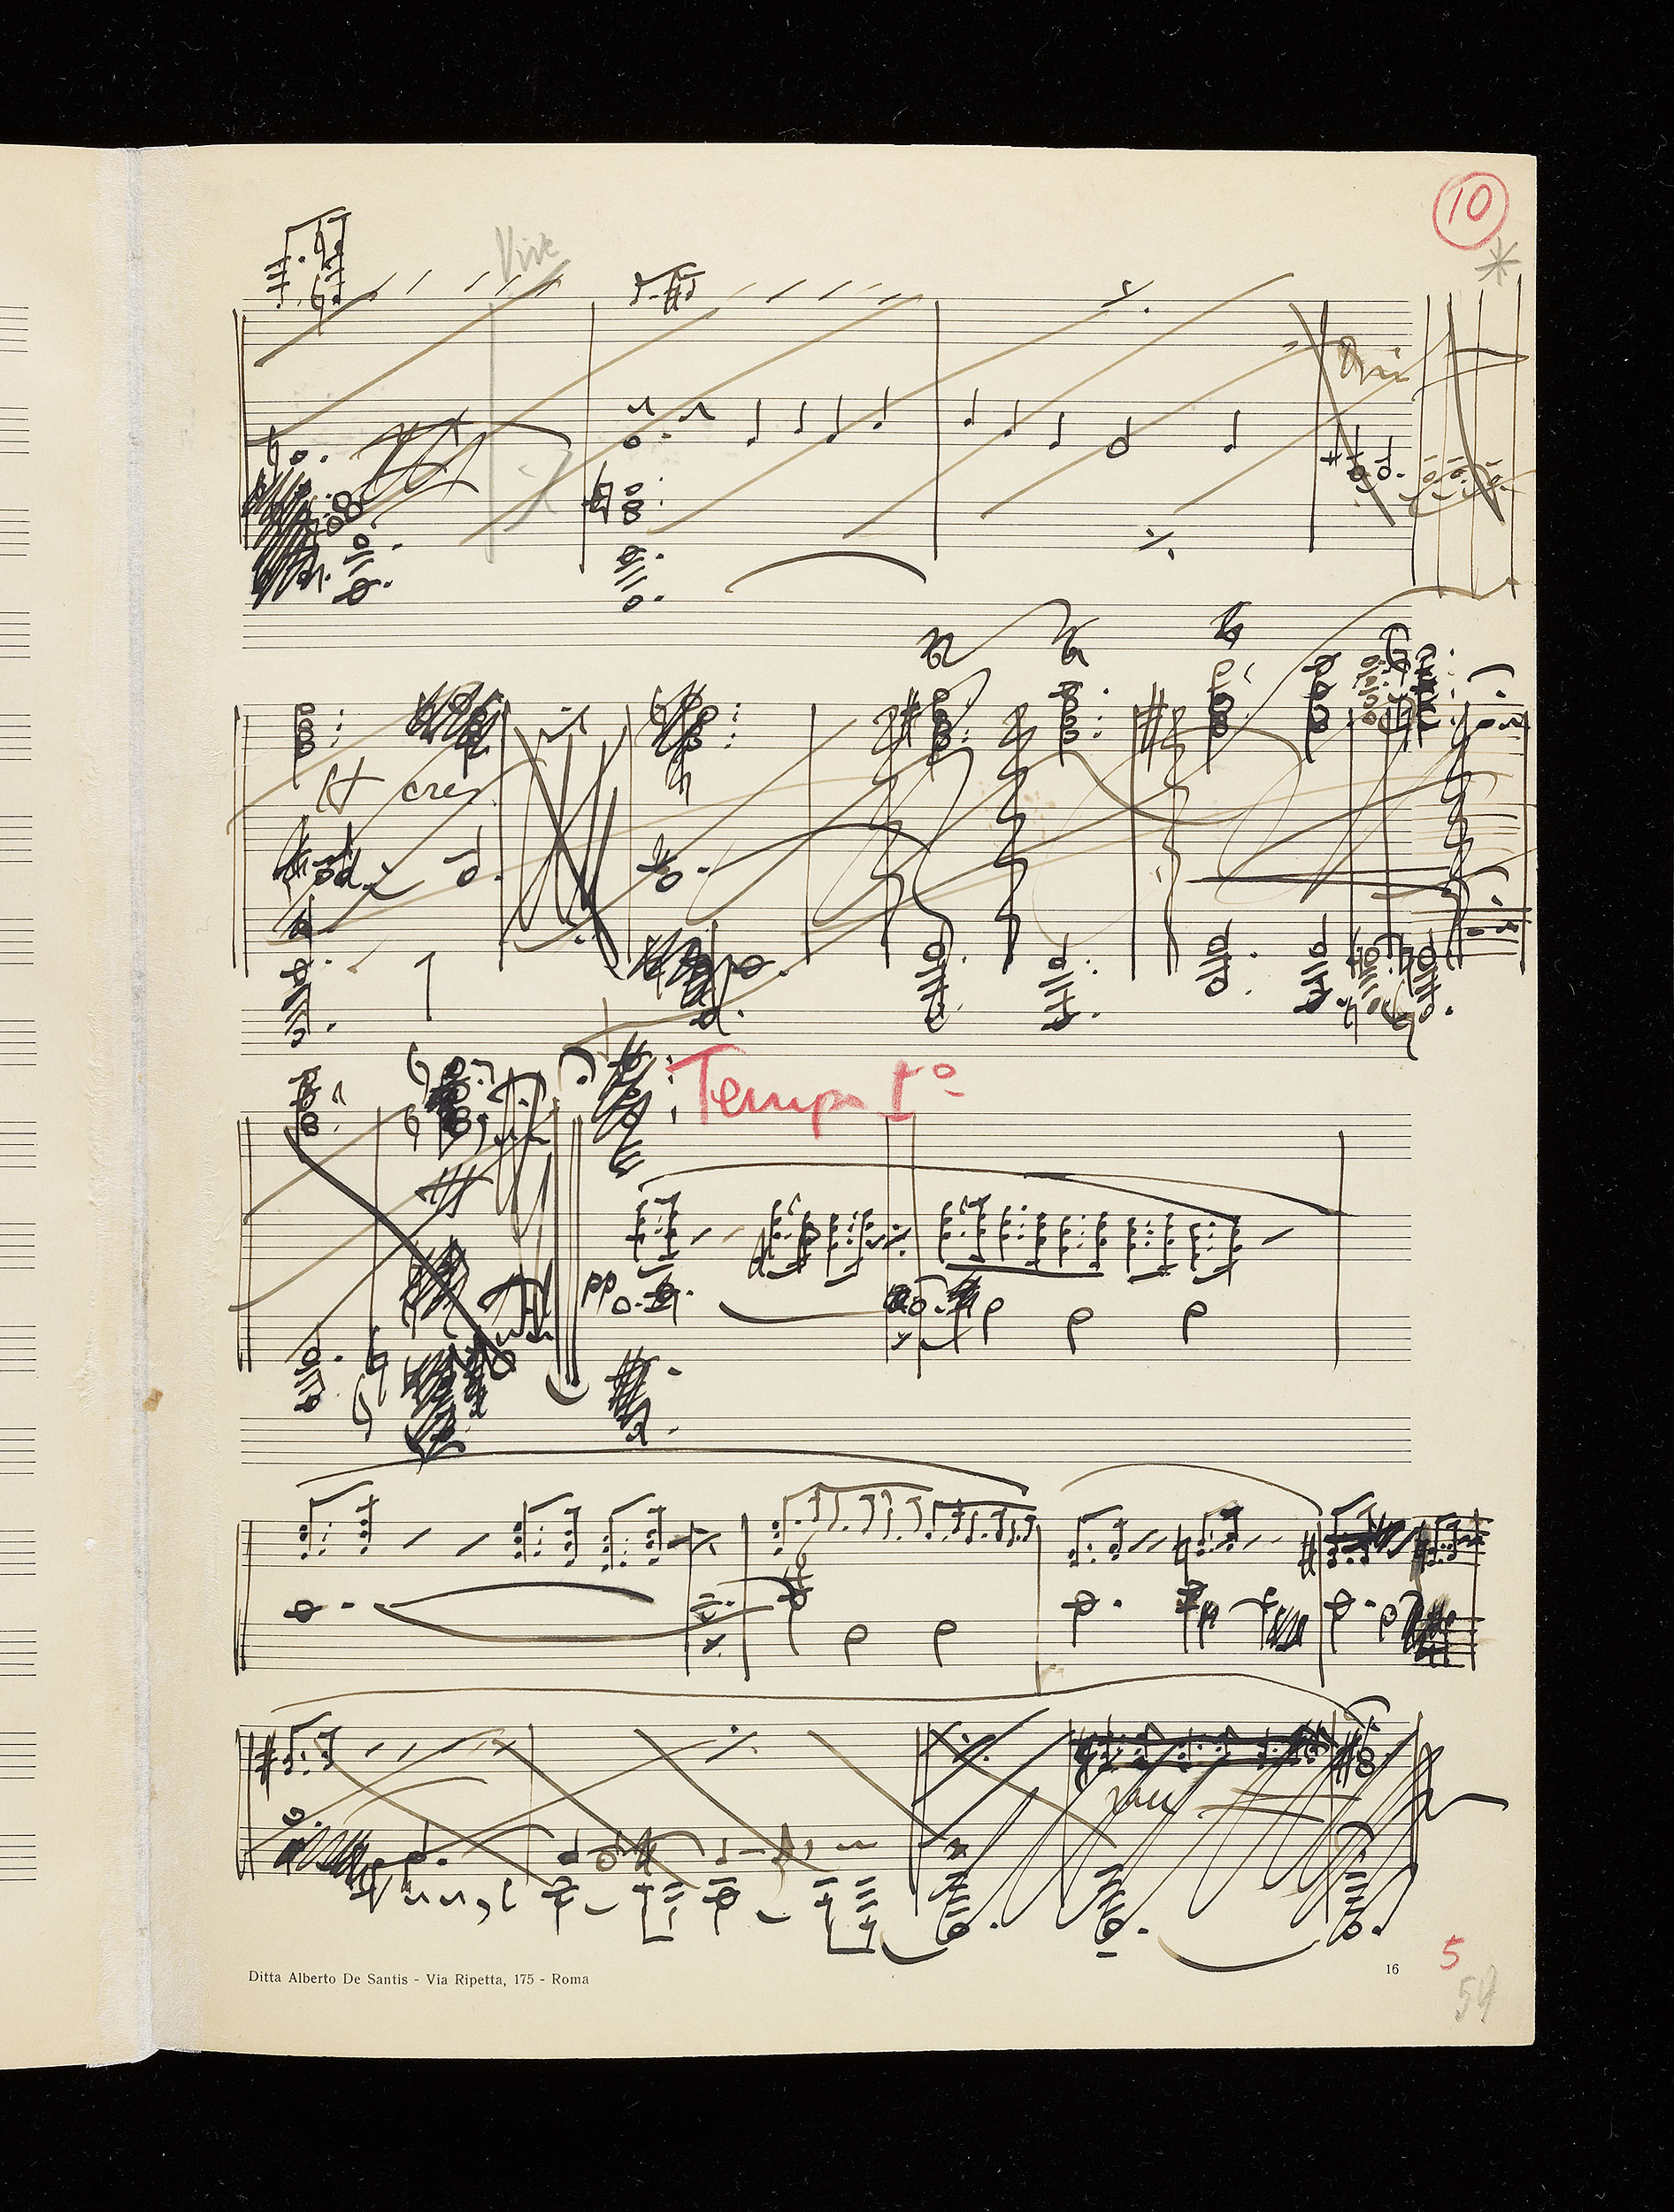 10
*
Vive
cres
Tempo Iº
pp
Ditta Alberto De Santis - Via Ripetta, 175 - Roma
16
5
59